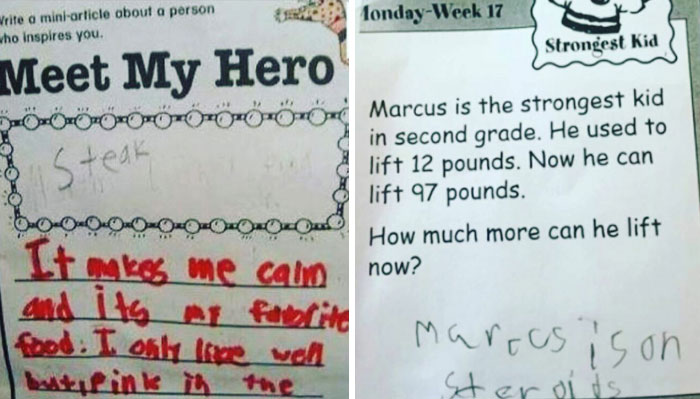 Write a mini-article about a person
who inspires you.
Meet My Hero
Steak
It makes me calm
and its my faborite
food. I only like well
but, pink in the
Monday-Week 17
Strongest Kid
Marcus is the strongest kid
in second grade. He used to
lift 12 pounds. Now he can
lift 97 pounds.
How much more can he lift
now?
Marcus is on
steroids